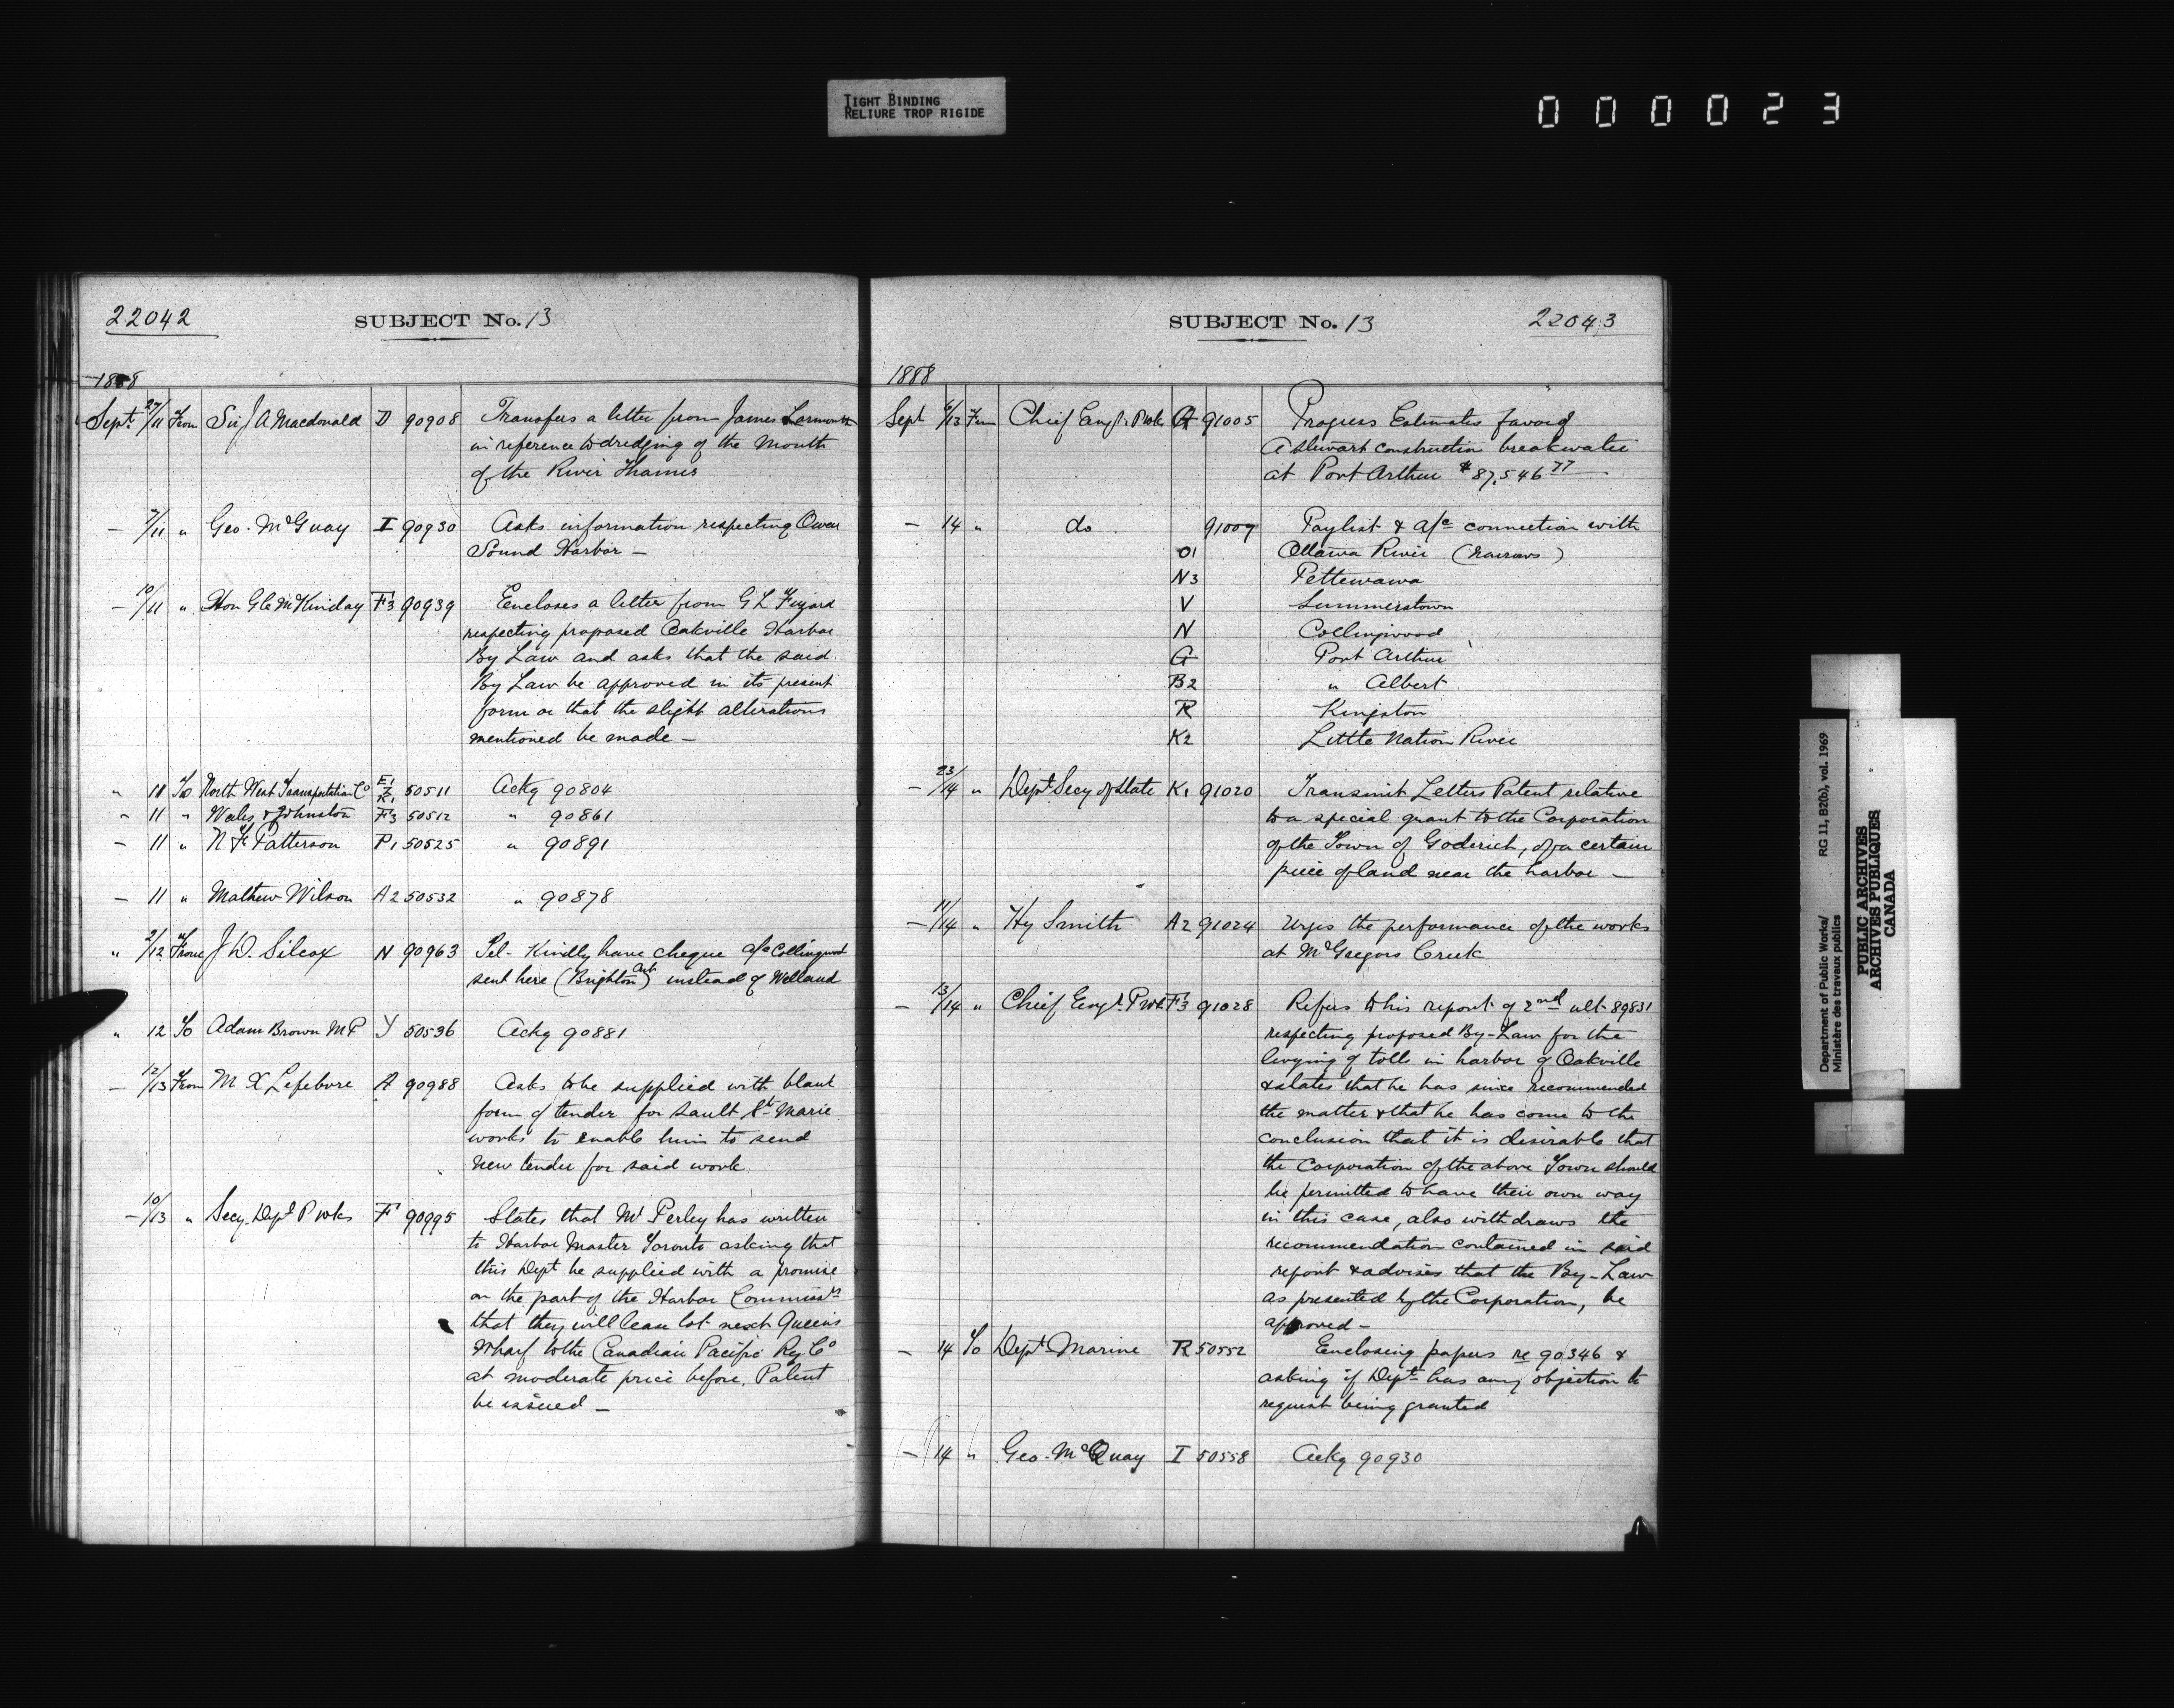 TIGHT BINDING
RELIURE TROP RIGIDE
000023
22042
SUBJECT No. 13
1888
Sept. 27/11 From Sir J A Macdonald D 90908 Transfers a letter from James Larmonth
in reference to dredging of the Mouth
of the River Thames
— 7/11 " Geo. McQuay I 90930 Asks information respecting Owen
Sound Harbor —
— 10/11 " Hon G C McKinday F3 90939 Encloses a letter from G L
respecting proposed Oakville Harbor
By Law and asks that the said
By Law be approved in its present
form or that the slight alterations
mentioned be made —
" 11 To North West Transportation Co E1 Z K1 50511 Ackg 90804
" 11 " Wales & Johnston F3 50512 " 90861
— 11 " N F Patterson P1 50525 " 90891
— 11 " Mathew Wilson A2 50532 " 90878
" 2/12 From J D. Silcox N 90963 Tel- Kindly have cheque a/c Collingwood
sent here (Brighton Ont) instead of Welland
" 12 To Adam Brown MP Y 50536 Ackg 90881
— 12/13 From M X Lefebvre A 90988 Asks to be supplied with blank
form of tender for Sault Ste Marie
works to enable him to send
new tender for said work
— 10/13 " Secy. Dept P Wks F 90995 States that Mr Perley has written
to Harbor Master Toronto asking that
this Dept be supplied with a promise
on the part of the Harbor Commissrs
that they will lean lot next Queens
Wharf to the Canadian Pacific Ry. Co
at moderate price before Patent
be issued —
SUBJECT No. 13
22043
1888
Sept 6/13 From Chief Engr. P Wks A 91005 Progress Estimates favor of
A Stewart construction breakwater
at Port Arthur $87,546 77 —
— 14 " do 91009 Paylist & a/c connection with
O1 Ottawa River (Narrows)
N3 Pettewawa
V Summerstown
N Collingwood
A Port Arthur
B2 " Albert
R Kingston
K2 Little Nation River
— 23/14 " Dept Secy of State K1 91020 Transmit Letters Patent relative
to a special grant to the Corporation
of the Town of Goderich, of a certain
piece of land near the harbor —
— 11/14 " Hy Smith A2 91024 Urges the performance of the works
at McGregors Creek
— 13/14 " Chief Engr. P Wks F3 91028 Refers to his report of 2nd ult 89831
respecting proposed By-Law for the
levying of tolls in harbor of Oakville
& states that he has since recommended
the matter & that he has come to the
conclusion that it is desirable that
the Corporation of the above Town should
be permitted to have their own way
in this case, also withdraws the
recommendation contained in said
report & advises that the By-Law
as presented by the Corporation, be
approved —
— 14 To Dept Marine R 50552 Enclosing papers re 90346 &
asking if Dept has any objection to
request being granted
— 14 " Geo. McQuay I 50558 Ackg 90930
Department of Public Works/ RG 11, B2(b), vol. 1969
Ministère des travaux publics
PUBLIC ARCHIVES
ARCHIVES PUBLIQUES
CANADA